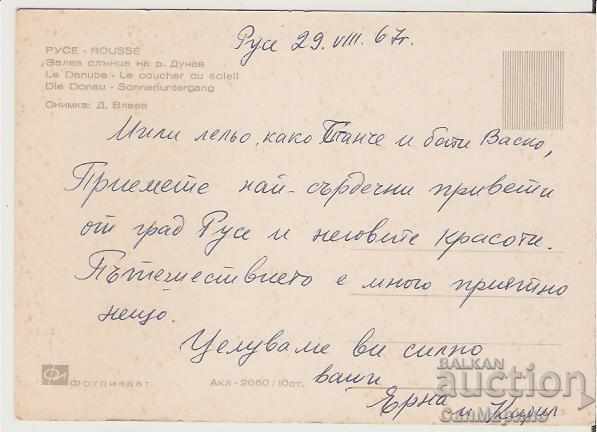 Русе 29.VIII.67г.
РУСЕ - ROUSSE
Залез слънце на р. Дунав
Le Danube - Le coucher du soleil
Die Donau - Sonnenuntergang
Снимка: Д. Влаев
Мили лельо, како Танче и бати Васко,
Приемете най-сърдечни привети
от град Русе и неговите красоти.
Пътешествието е много приятно
нещо.
Целуваме ви силно
ваши
Ерна и
ФОТОИЗДАТ
Акл-2060 / 10ст.
BALKAN
auction